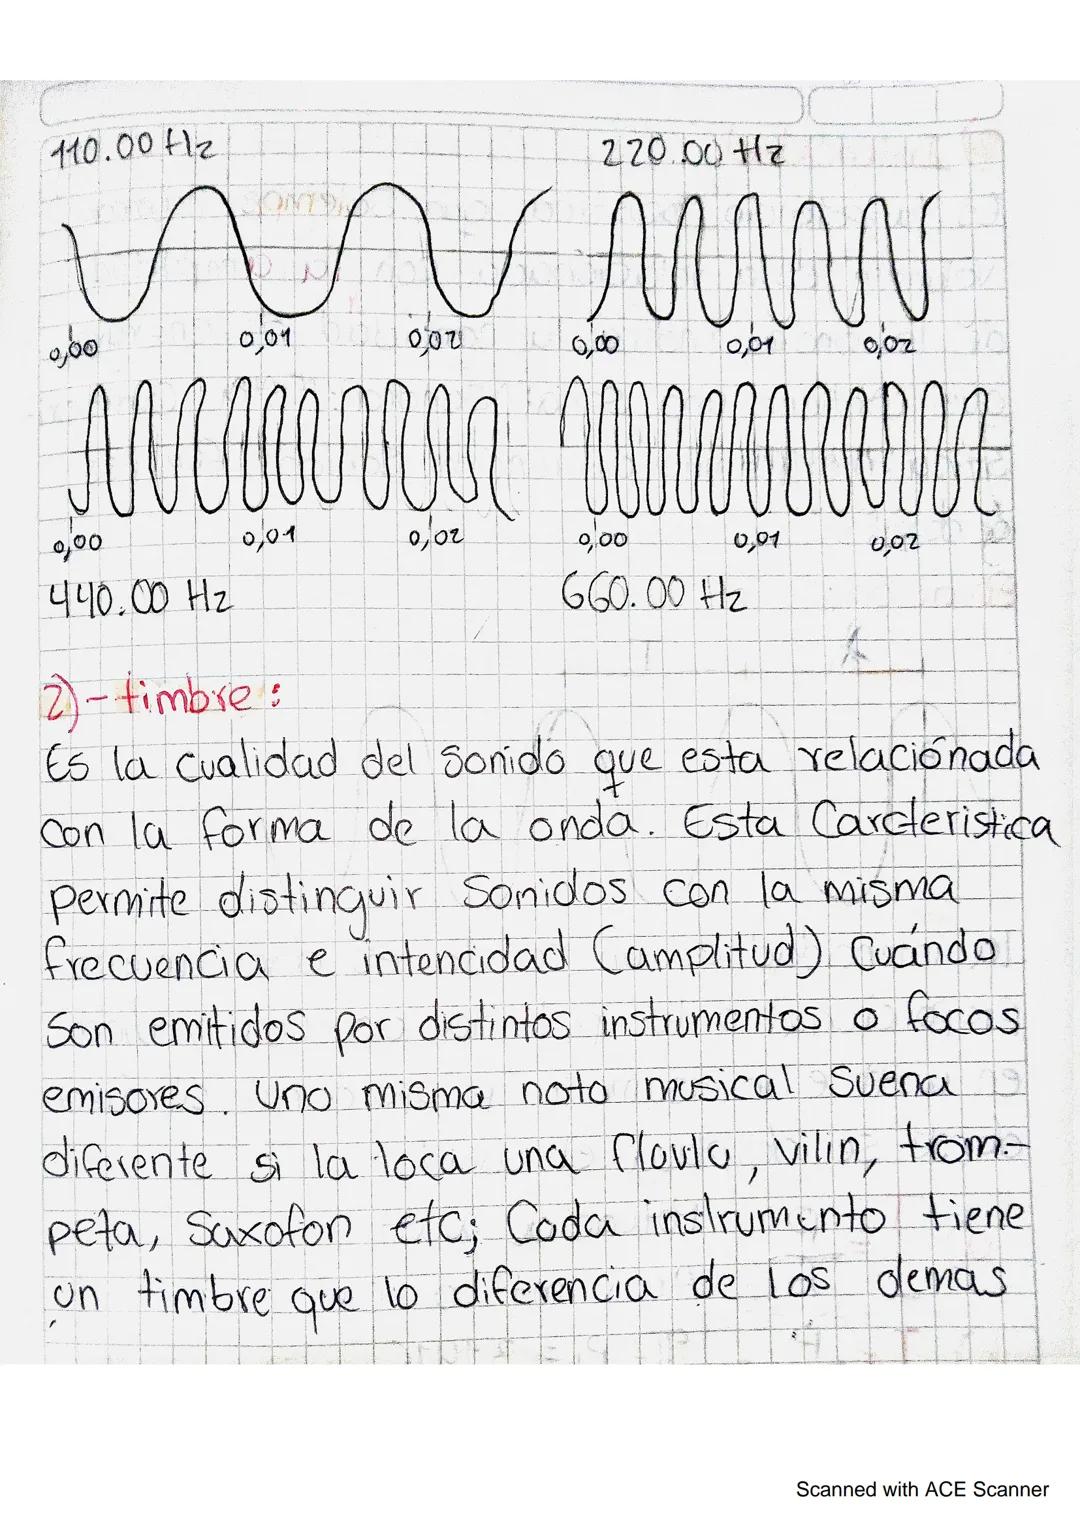 110.00 Hz
220.00 Hz
0,00 0,01 0,02
0,00 0,01 0,02
0,00 0,01 0,02
0,00 0,01 0,02
440.00 Hz
660.00 Hz
2)-timbre:
Es la cualidad del sonido que esta relaciónada
con la forma de la onda. Esta Carcteristica
permite distinguir Sonidos con la misma
frecuencia e intencidad (amplitud) Cuándo
Son emitidos por distintos instrumentos o focos
emisores. Una misma nota musical Suena
diferente si la toca una flauta, vilin, trom-
peta, Saxofon etc; Cada instrumento tiene
un timbre que lo diferencia de los demas
Scanned with ACE Scanner